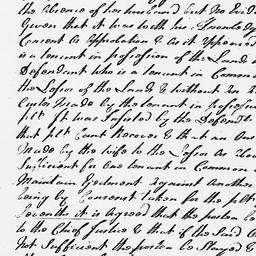 the Absence of her husband but no Evide
Given that it was with his Knowledge
Consent or Approbation & as it appeared
is a tenant in possession of the Lands
Defendant who is a tenant in Common
the Lessor of the Lands & without an
Entry made by the tenant in possession
plt. It was Insisted by the Defendt
that plt Cant Recover & that an Ous
Made by the wife to the Lessor as
Sufficient for one tenant in Common
Maintain Ejectment against Another
being by Consent taken for the plt
Seventhr it is agreed that the postea
to the Chief Justice & that if the Said
Not Sufficient the postea be Stayed &